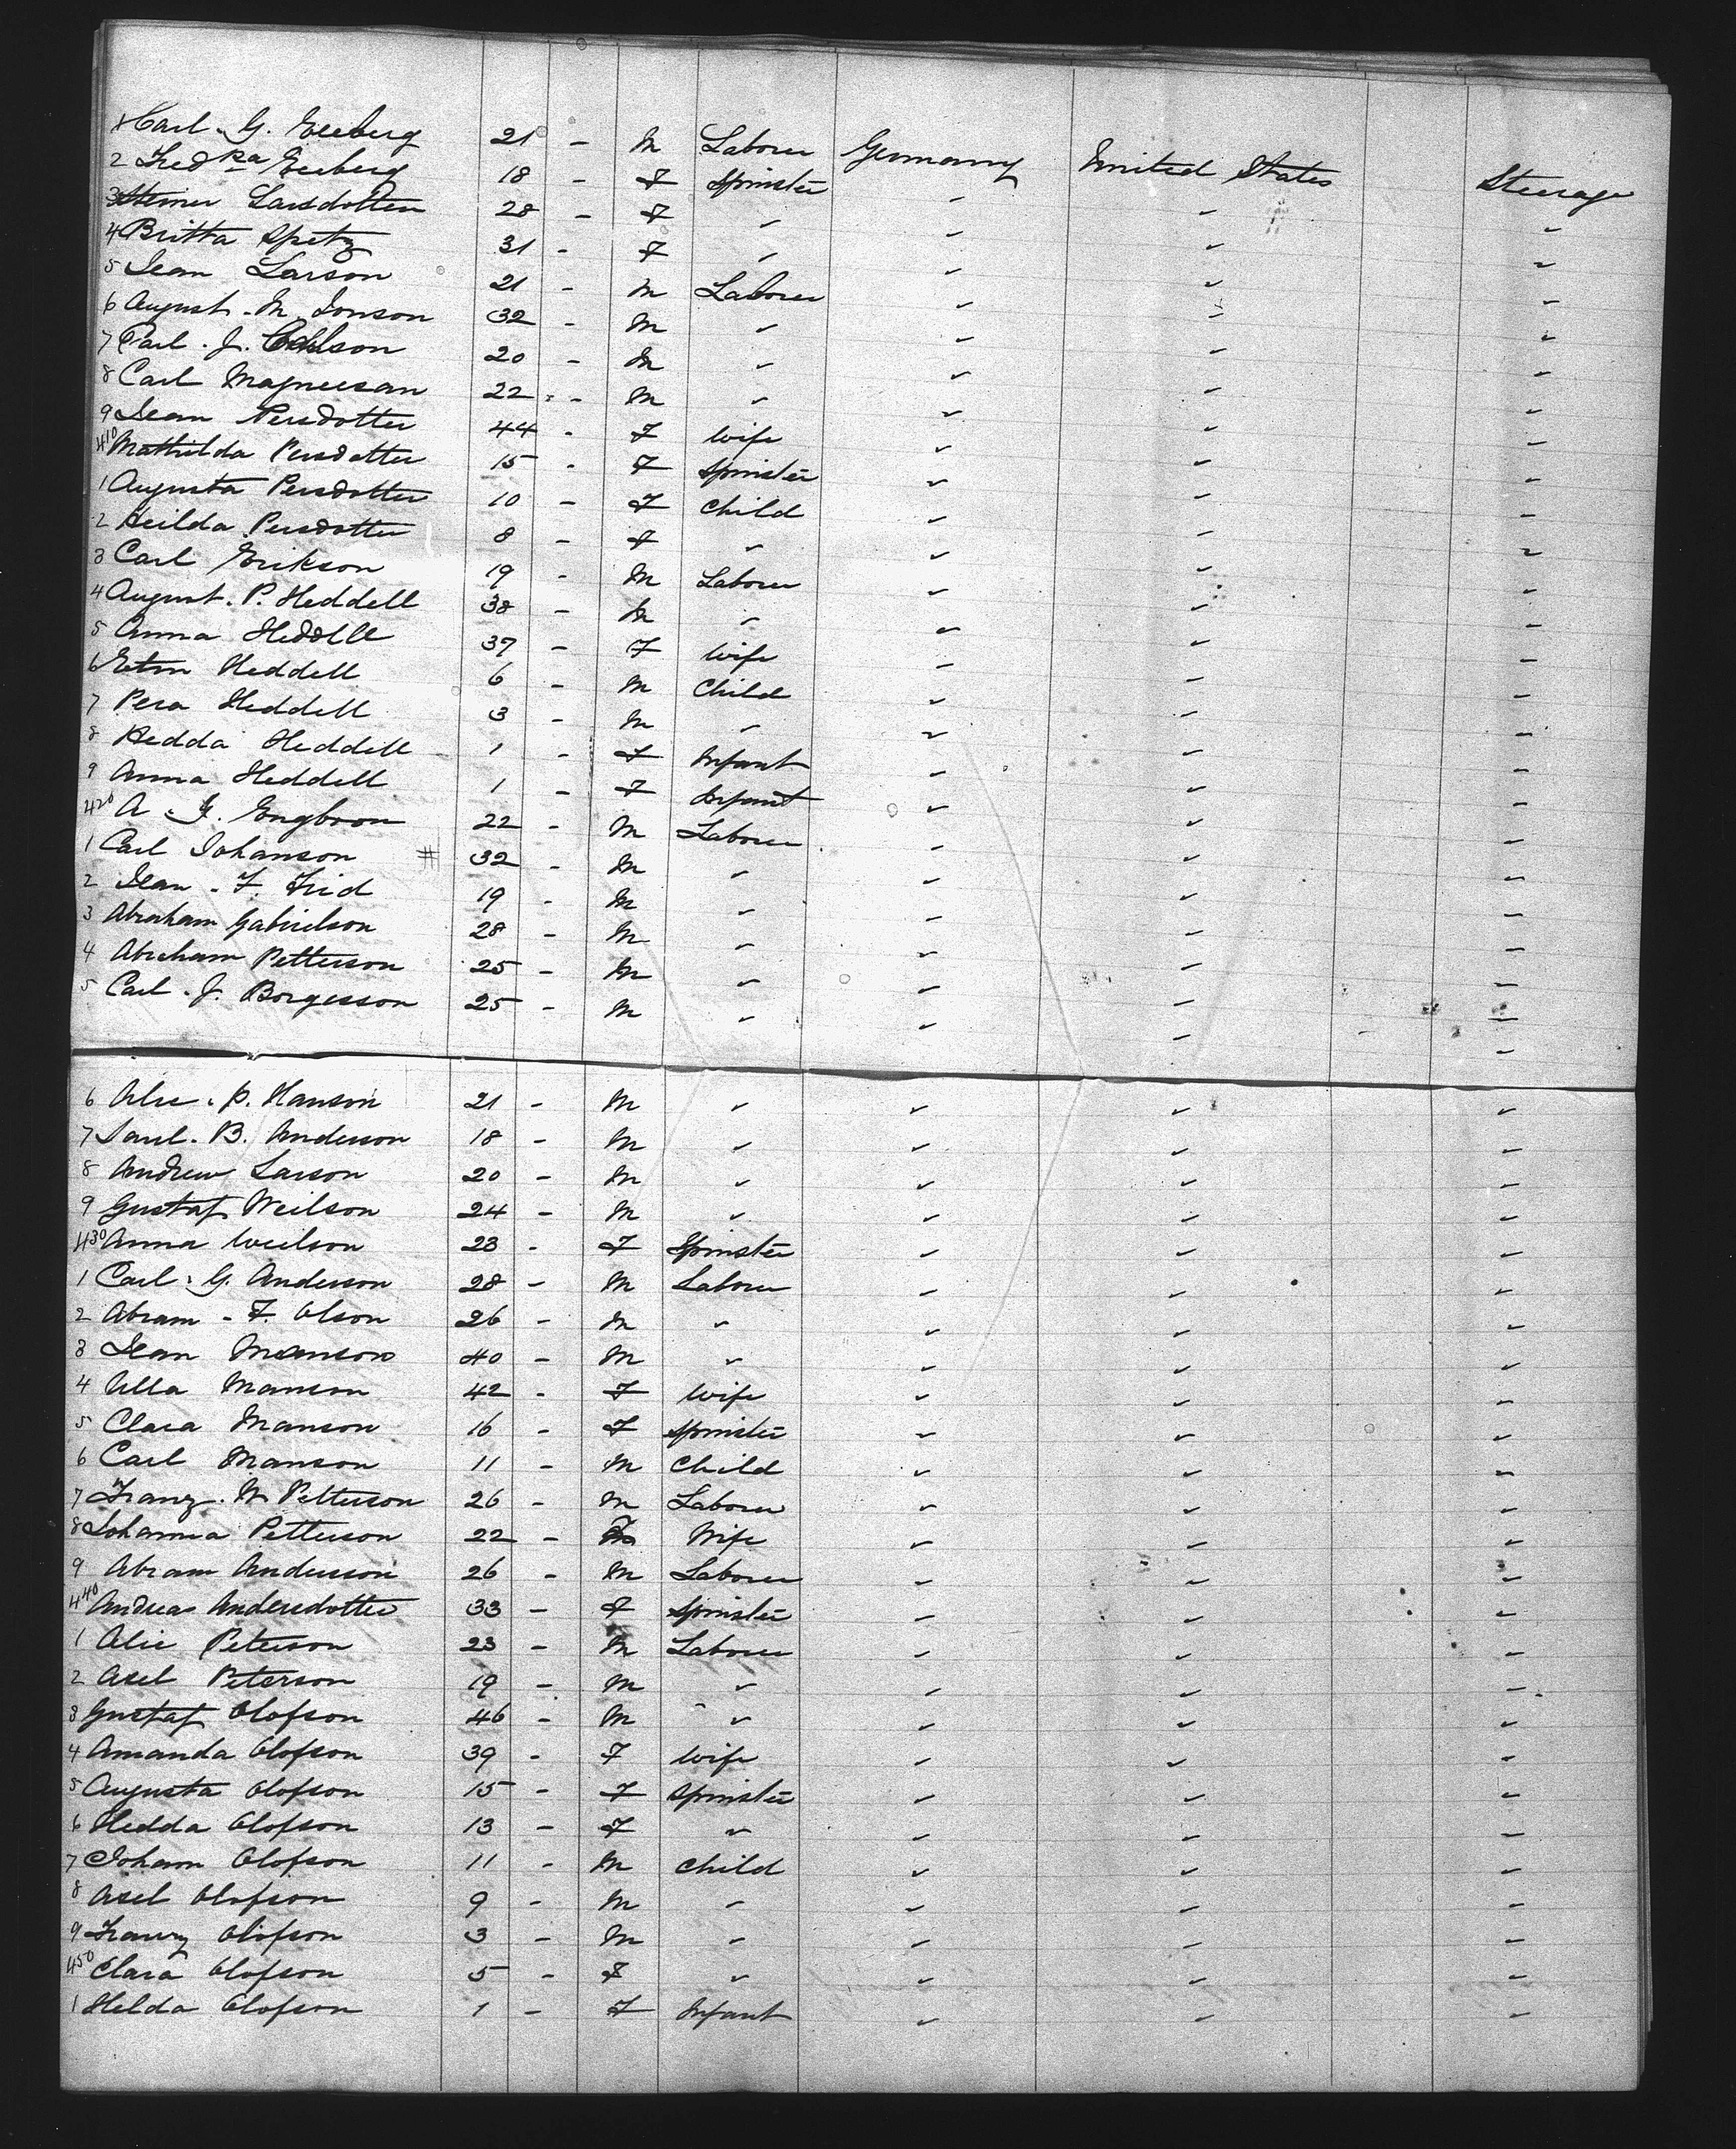 1 Carl. G. Eeeberg 21 - M Laborer Germany United States Steerage
2 Fredka Eeeberg 18 - F Spinster " " "
3 Larsdotter 28 - F " " " "
4 Britta Spetz 31 - F " " " "
5 Sean Larson 21 - M Laborer " " "
6 August. M. Jonson 32 - M " " " "
7 Carl. J. Carlson 20 - M " " " "
8 Carl Magneesan 22 - M " " " "
9 Sean Persdotter 44 - F Wife " " "
410 Mathilda Persdotter 15 - F Spinster " " "
1 Augusta Persdotter 10 - F Child " " "
2 Heilda Persdotter 8 - F " " " "
3 Carl Erikson 19 - M Laborer " " "
4 August. P. Heddell 38 - M " " " "
5 Anna Heddell 37 - F Wife " " "
6 Heddell 6 - M Child " " "
7 Pera Heddell 3 - M " " " "
8 Hedda Heddell 1 - F Infant " " "
9 Anna Heddell 1 - F Infant " " "
420 A. G. Engboom 22 - M Laborer " " "
1 Carl Johanson # 32 - M " " " "
2 Sean. F. Frid 19 - M " " " "
3 Abraham Gabrielson 28 - M " " " "
4 Abraham Petterson 25 - M " " " "
5 Carl. J. Borgesson 25 - M " " " "
6 Alie. P. Hanson 21 - M " " " "
7 Saul. B. Anderson 18 - M " " " "
8 Andrew Larson 20 - M " " " "
9 Gustaf Weilson 24 - M " " " "
430 Anna Weilson 23 - F Spinster " " "
1 Carl. G. Anderson 28 - M Laborer " " "
2 Abram - F. Olson 26 - M " " " "
3 Sean Manson 40 - M " " " "
4 Ulla Manson 42 - F Wife " " "
5 Clara Manson 16 - F Spinster " " "
6 Carl Manson 11 - M Child " " "
7 Franz. W. Petterson 26 - M Laborer " " "
8 Johanna Petterson 22 - F Wife " " "
9 Abram Anderson 26 - M Laborer " " "
440 Andreas Andersdotter 33 - F Spinster " " "
1 Alie Peterson 23 - M Laborer " " "
2 Axel Peterson 19 - M " " " "
3 Gustaf Olofson 46 - M " " " "
4 Amanda Olofson 39 - F Wife " " "
5 Augusta Olofson 15 - F Spinster " " "
6 Hedda Olofson 13 - F " " " "
7 Johann Olofson 11 - M Child " " "
8 Axel Olofson 9 - M " " " "
9 Franz Olofson 3 - M " " " "
450 Clara Olofson 5 - F " " " "
1 Helda Olofson 1 - F Infant " " "